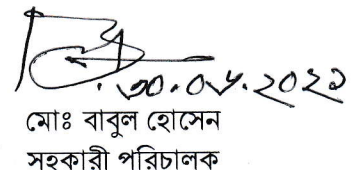 ৩০.০৮.২০২১
মোঃ বাবুল হোসেন
সহকারী পরিচালক